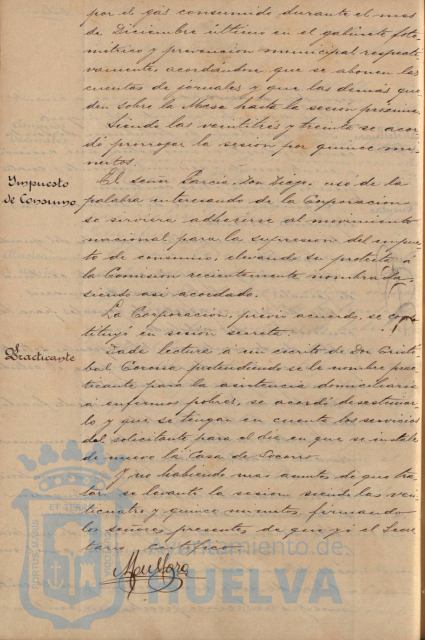 por el gas consumido durante el mes
de Diciembre último en el gabinete foto-
métrico y prevención municipal respecti-
vamente, acordándose que se abonen las
cuentas de jornales y que las demás que-
den sobre la Mesa hasta la sesión próxima.
Siendo las veintitrés y treinta se acor-
dó prorrogar la sesión por quince mi-
nutos.
Impuesto
de Consumo
El señor García, Don Diego, usó de la
palabra interesando de la Corporación
se sirviera adherirse al movimiento
nacional para la supresión del impues-
to de consumo, elevando su protesta á
la Comisión recientemente nombrada,
siendo así acordado.
La Corporación, previo acuerdo, se cons-
tituyó en sesión secreta.
Practicante
Dada lectura á un escrito de Don Cristó-
bal pretendiendo se le nombre prac-
ticante para la asistencia domiciliaria
á enfermos pobres, se acordó desestimar-
lo y que se tengan en cuenta los servicios
del solicitante para el día en que se instale
de nuevo la Casa de Socorro.
Y no habiendo mas asuntos de que tra-
tar se levantó la sesión siendo las vein-
ticuatro y quince minutos, firmando
los señores presentes, de que yo el Secre-
tario certifico.
Ayuntamiento de
HUELVA